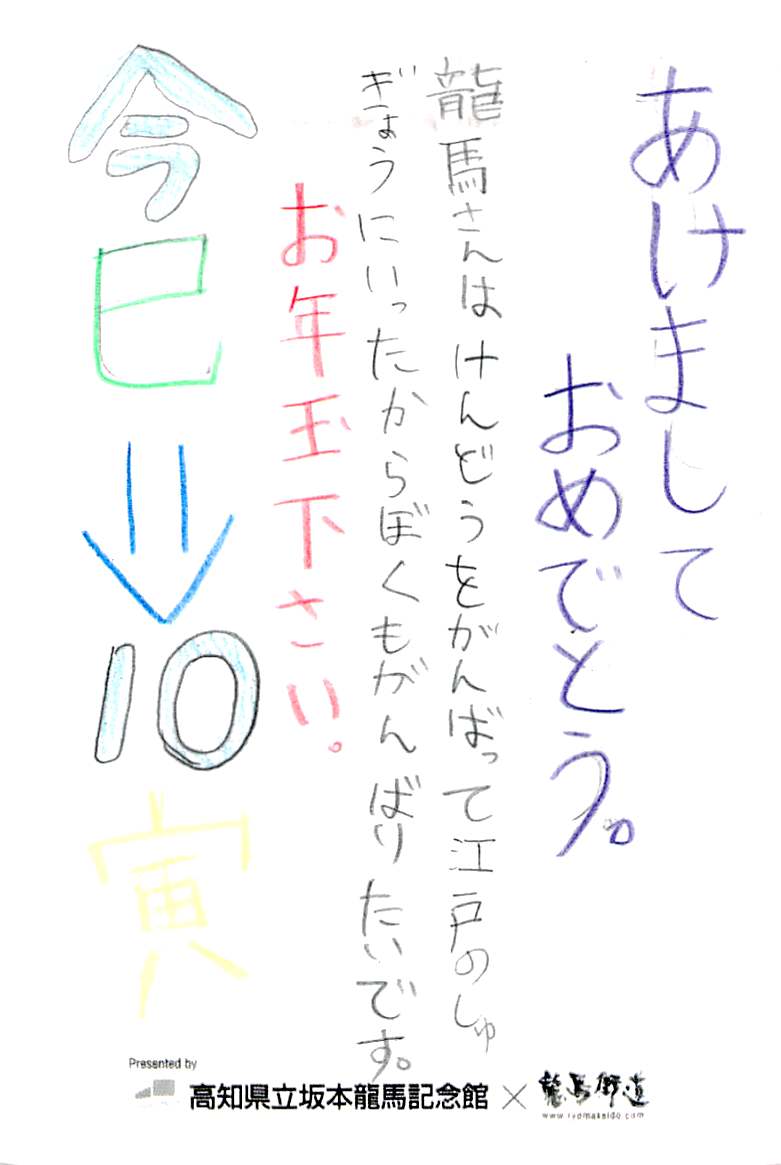 あけまして
おめでとう。
龍馬さんはけんどうをがんばって江戸のしゅ
ぎょうにいったからぼくもがんばりたいです。
お年玉下さい。
今
巳
⇓
10
寅
Presented by
高知県立坂本龍馬記念館×龍馬街道
www.ryomakaido.com